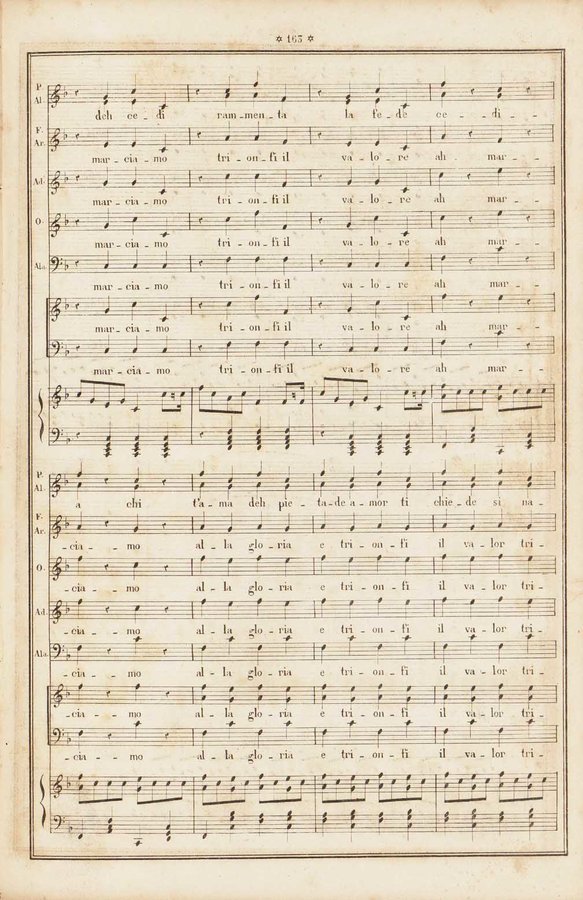 * 163 *
P.
Al
deh ce _ di ram_men_ta la fe_de ce _ _ di _ _
F.
Ar.
mar _ cia _ mo tri _ on _ fi il va _ lo _ re ah mar _ _
Ad.
mar _ cia _ mo tri _ on _ fi il va _ lo _ re ah mar _ _
O.
mar _ cia _ mo tri _ on _ fi il va _ lo _ re ah mar _ _
Alo.
mar _ cia _ mo tri _ on _ fi il va _ lo _ re ah mar _ _
mar _ cia _ mo tri _ on _ fi il va _ lo _ re ah mar _ _
mar _ cia _ mo tri _ on _ fi il va _ lo _ re ah mar _ _
P.
Al.
a chi t'a_ma deh pie _ ta_de a_mor ti chie_de si na _
F.
Ar.
_ cia _ _ mo al _ la glo _ ria e tri _ on _ fi il va _ lor tri _
O.
_ cia _ _ mo al _ la glo _ ria e tri _ on _ fi il va _ lor tri _
Ad.
_ cia _ _ mo al _ la glo _ ria e tri _ on _ fi il va _ lor tri _
Alo.
_ cia _ _ mo al _ la glo _ ria e tri _ on _ fi il va _ lor tri _
_ cia _ _ mo al _ la glo _ ria e tri _ on _ fi il va _ lor tri _
_ cia _ _ mo al _ la glo _ ria e tri _ on _ fi il va _ lor tri _